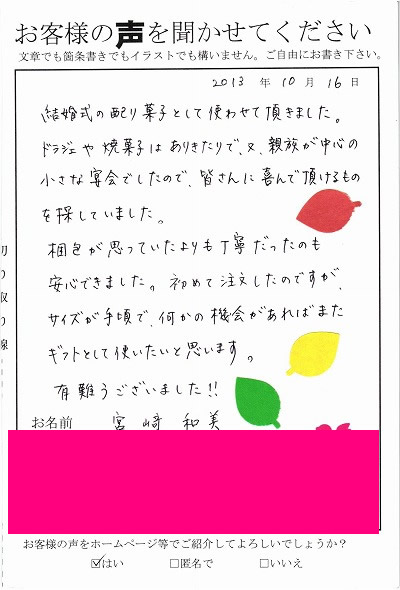 お客様の声を聞かせてください
文章でも箇条書きでもイラストでも構いません。ご自由にお書き下さい。
2013 年 10 月 16 日
結婚式の配り菓子として使わせて頂きました。
ドラジェや焼菓子はありきたりで、又、親族が中心の
小さな宴会でしたので、皆さんに喜んで頂けるもの
を探していました。
梱包が思っていたよりも丁寧だったのも
安心できました。初めて注文したのですが、
サイズが手頃で、何かの機会があればまた
ギフトとして使いたいと思います。
有難うございました!!
お名前 宮﨑 和美
切り取り線
お客様の声をホームページ等でご紹介してよろしいでしょうか?
☑はい □匿名で □いいえ